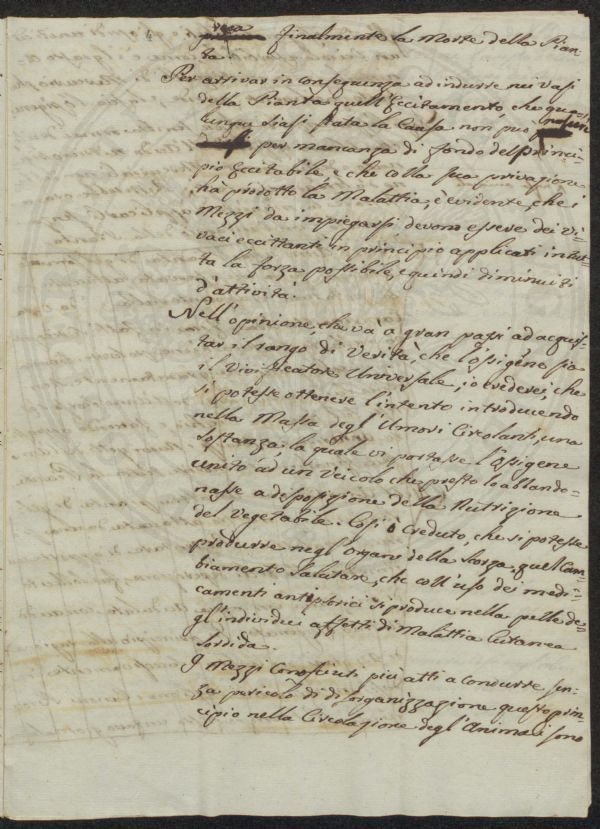 finalmente la Morte della Pian-
ta.
Per arrivar in conseguenza ad indurre nei vasi
della Pianta quell'Eccitamento, che qua-
lunque siasi stata la Causa non può
per mancanza di fondo del princi-
pio Eccitabile, e che colla sua privazione
ha prodotto la Malattia, è evidente, che i
Mezzi da impiegarsi devono essere dei vi-
vaci eccittanti in principio applicati in tut-
ta la forza possibile, e quindi diminuiti
d'attività.
Nell'opinione, che và a gran passi ad acquis-
tar il rango di Verità, che l'ossigène sia
il Vivificatore Universale, io crederei, che
si potesse ottenere l'intento introducendo
nella Massa degl'Umori Circolanti, una
sostanza, la quale vi portasse l'Ossigene
unito ad un Veicolo che presto lo abbando-
nasse a disposizione della Nutrizione
del Vegetabile. Così ò Creduto, che si potesse
produrre negl'Organi della Scorza quel Cam-
biamento Salutare, che coll'uso dei medi-
camenti antipsorici si produce nella pelle de-
gl'individui affetti di Malattia Cutanea
Sordida.
I Mezzi Conosciuti più atti a condurre sen-
za pericolo di disorganizzazione questo prin-
cipio nella Circolazione degl'Animali sono